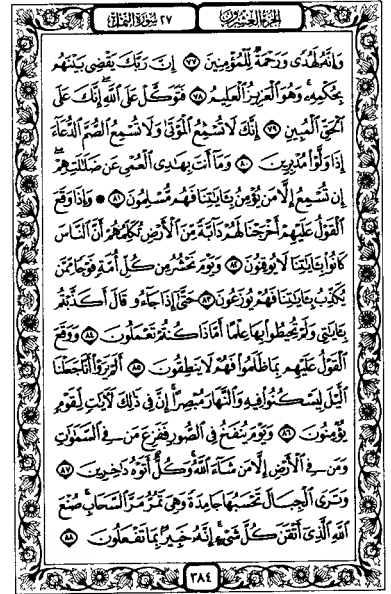 الجزء العشرون ٢٧ سورة النمل
وَإِنَّهُۥ لَهُدًى وَرَحْمَةٌ لِّلْمُؤْمِنِينَ ٧٧ إِنَّ رَبَّكَ يَقْضِى بَيْنَهُم
بِحُكْمِهِۦ وَهُوَ ٱلْعَزِيزُ ٱلْعَلِيمُ ٧٨ فَتَوَكَّلْ عَلَى ٱللَّهِ إِنَّكَ عَلَى
ٱلْحَقِّ ٱلْمُبِينِ ٧٩ إِنَّكَ لَا تُسْمِعُ ٱلْمَوْتَىٰ وَلَا تُسْمِعُ ٱلصُّمَّ ٱلدُّعَآءَ
إِذَا وَلَّوْا۟ مُدْبِرِينَ ٨٠ وَمَآ أَنتَ بِهَـٰدِى ٱلْعُمْىِ عَن ضَلَـٰلَتِهِمْ
إِن تُسْمِعُ إِلَّا مَن يُؤْمِنُ بِـَٔايَـٰتِنَا فَهُم مُّسْلِمُونَ ٨١ ۞ وَإِذَا وَقَعَ
ٱلْقَوْلُ عَلَيْهِمْ أَخْرَجْنَا لَهُمْ دَآبَّةً مِّنَ ٱلْأَرْضِ تُكَلِّمُهُمْ أَنَّ ٱلنَّاسَ
كَانُوا۟ بِـَٔايَـٰتِنَا لَا يُوقِنُونَ ٨٢ وَيَوْمَ نَحْشُرُ مِن كُلِّ أُمَّةٍ فَوْجًا مِّمَّن
يُكَذِّبُ بِـَٔايَـٰتِنَا فَهُمْ يُوزَعُونَ ٨٣ حَتَّىٰٓ إِذَا جَآءُو قَالَ أَكَذَّبْتُم
بِـَٔايَـٰتِى وَلَمْ تُحِيطُوا۟ بِهَا عِلْمًا أَمَّاذَا كُنتُمْ تَعْمَلُونَ ٨٤ وَوَقَعَ
ٱلْقَوْلُ عَلَيْهِم بِمَا ظَلَمُوا۟ فَهُمْ لَا يَنطِقُونَ ٨٥ أَلَمْ يَرَوْا۟ أَنَّا جَعَلْنَا
ٱلَّيْلَ لِيَسْكُنُوا۟ فِيهِ وَٱلنَّهَارَ مُبْصِرًا إِنَّ فِى ذَٰلِكَ لَـَٔايَـٰتٍ لِّقَوْمٍ
يُؤْمِنُونَ ٨٦ وَيَوْمَ يُنفَخُ فِى ٱلصُّورِ فَفَزِعَ مَن فِى ٱلسَّمَـٰوَٰتِ
وَمَن فِى ٱلْأَرْضِ إِلَّا مَن شَآءَ ٱللَّهُ وَكُلٌّ أَتَوْهُ دَٰخِرِينَ ٨٧
وَتَرَى ٱلْجِبَالَ تَحْسَبُهَا جَامِدَةً وَهِىَ تَمُرُّ مَرَّ ٱلسَّحَابِ صُنْعَ
ٱللَّهِ ٱلَّذِىٓ أَتْقَنَ كُلَّ شَىْءٍ إِنَّهُۥ خَبِيرٌۢ بِمَا تَفْعَلُونَ ٨٨
٣٨٤